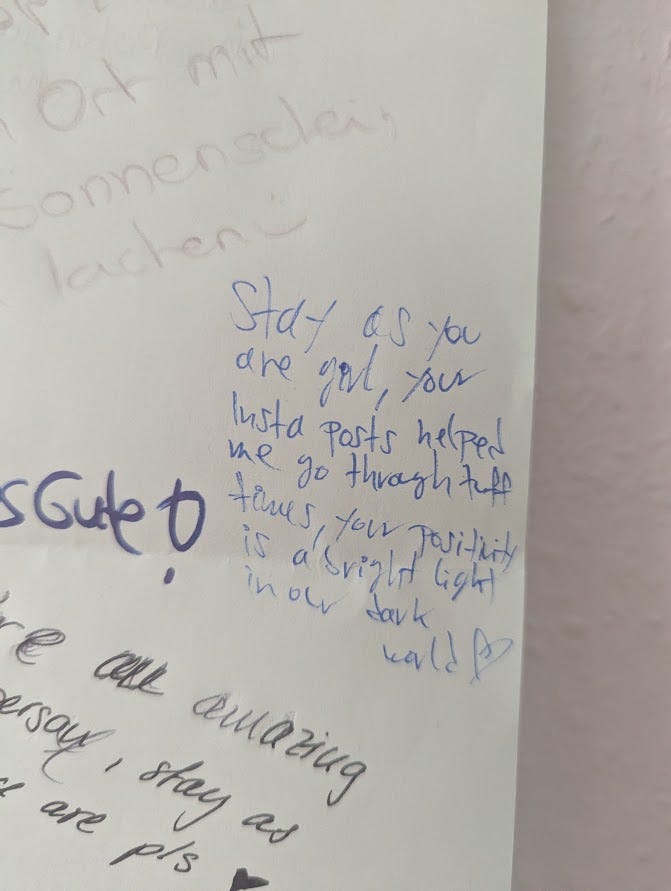 Ort mit
Sonnenschein
lachen
Stay as you
are girl, your
Insta posts helped
me go through tuff
times, your positivity
is a bright light
in our dark
world ♡
sGute!
are an amazing
person, stay as
are pls ♥